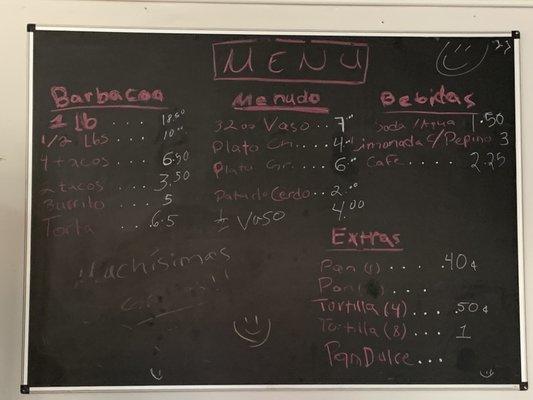 MENU
Barbacoa
1 lb .... 18.50
1/2 Lbs .... 10.00
4 tacos .... 6.50
2 tacos .... 3.50
Burrito .... 5
Torta ....6.5
Muchísimas
Menudo
32oz Vaso .. 7.00
Plato Ch. .. 4.00
Plato Gr. .. 6.00
Pata de Cerdo .. 2.00
½ Vaso 4.00
Bebidas
Soda / Agua 1.50
Limonada c/Pepino 3
Cafe ..... 2.25
Extras
Pan (1) .... .40¢
Pan
Tortilla (4) .... .50¢
Tortilla (8) .... 1
Pan Dulce ...